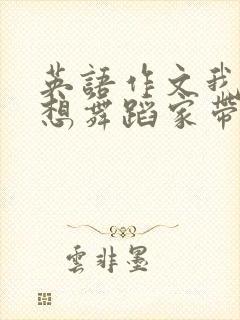 英語作文我
想舞蹈家帶
雲非墨